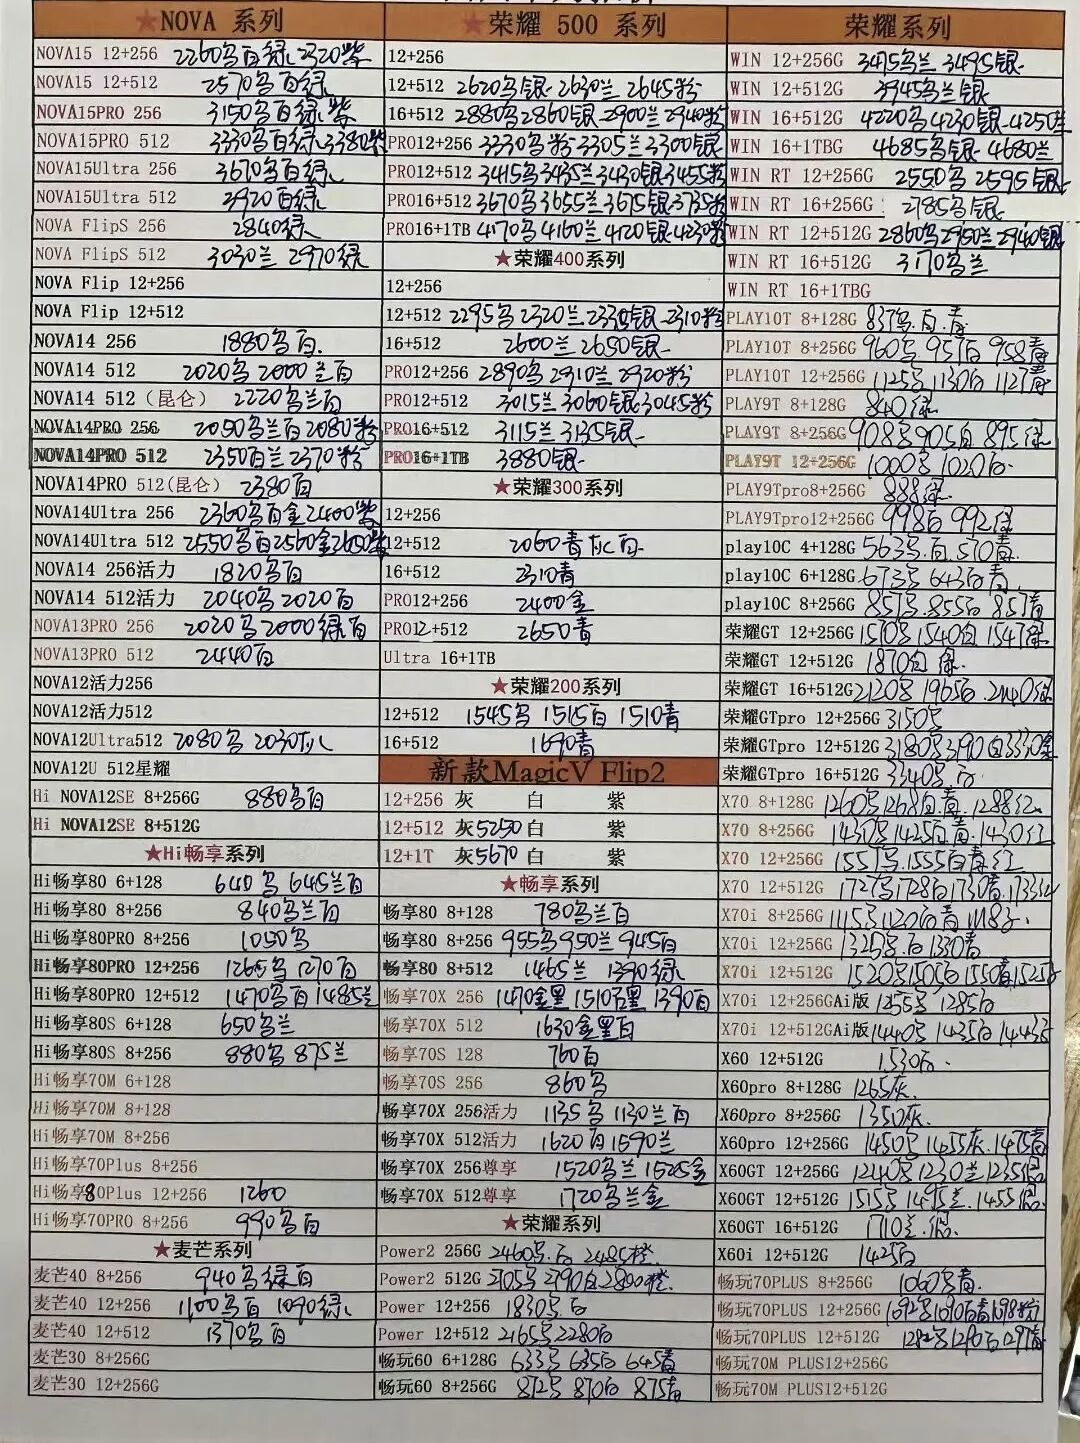 ★NOVA 系列
NOVA15 12+256 2260乌白绿 2320紫
NOVA15 12+512 2570乌白绿
NOVA15PRO 256 3150乌白绿紫
NOVA15PRO 512 3330乌白绿 3380紫
NOVA15Ultra 256 3670乌白绿
NOVA15Ultra 512 3920白绿
NOVA FlipS 256 2840绿
NOVA FlipS 512 3030兰 2970绿
NOVA Flip 12+256
NOVA Flip 12+512
NOVA14 256 1880乌白
NOVA14 512 2020乌 2000兰白
NOVA14 512（昆仑） 2220乌兰白
NOVA14PRO 256 2050乌兰白 2080粉
NOVA14PRO 512 2350白兰 2370粉
NOVA14PRO 512(昆仑) 2380白
NOVA14Ultra 256 2360乌白金 2400紫
NOVA14Ultra 512 2550乌白 2560金 2650紫
NOVA14 256活力 1820乌白
NOVA14 512活力 2040乌 2020白
NOVA13PRO 256 2020乌 2000绿白
NOVA13PRO 512 2440白
NOVA12活力256
NOVA12活力512
NOVA12Ultra512 2080乌 2030灰
NOVA12U 512星耀
Hi NOVA12SE 8+256G 880乌白
Hi NOVA12SE 8+512G
★Hi畅享系列
Hi畅享80 6+128 640乌 645兰白
Hi畅享80 8+256 840乌兰白
Hi畅享80PRO 8+256 1050乌
Hi畅享80PRO 12+256 1265乌 1270白
Hi畅享80PRO 12+512 1470乌白 1485兰
Hi畅享80S 6+128 650乌兰
Hi畅享80S 8+256 880乌 875兰
Hi畅享70M 6+128
Hi畅享70M 8+128
Hi畅享70M 8+256
Hi畅享70Plus 8+256
Hi畅享80Plus 12+256 1260
Hi畅享70PRO 8+256 990乌白
★麦芒系列
麦芒40 8+256 940乌绿白
麦芒40 12+256 1100乌白 1090绿
麦芒40 12+512 1370乌白
麦芒30 8+256G
麦芒30 12+256G
★荣耀 500 系列
12+256
12+512 2620乌银 2630兰 2645粉
16+512 2880乌 2860银 2900兰 2940粉
PRO12+256 3330乌粉 3305兰 3300银
PRO12+512 3415乌 3435兰 3430银 3455粉
PRO16+512 3670乌 3655兰 3675银 3735粉
PRO16+1TB 4170乌 4160兰 4120银 4230粉
★荣耀400系列
12+256
12+512 2295乌 2320兰 2330银 2310粉
16+512 2600兰 2650银
PRO12+256 2890乌 2910兰 2920粉
PRO12+512 3015兰 3060银 3045粉
PRO16+512 3115兰 3135银
PRO16+1TB 3880银
★荣耀300系列
12+256
12+512 2060青灰白
16+512 2310青
PRO12+256 2400金
PRO12+512 2650青
Ultra 16+1TB
★荣耀200系列
12+512 1545乌 1515白 1510青
16+512 1690青
新款MagicV Flip2
12+256 灰 白 紫
12+512 灰5250 白 紫
12+1T 灰5670 白 紫
★畅享系列
畅享80 8+128 780乌兰白
畅享80 8+256 955乌 950兰 945白
畅享80 8+512 1465兰 1390绿
畅享70X 256 1470金黑 1510 黑 1390白
畅享70X 512 1630金黑白
畅享70S 128 760白
畅享70S 256 860乌
畅享70X 256活力 1135乌 1130兰白
畅享70X 512活力 1620白 1590兰
畅享70X 256尊享 1520乌兰 1525金
畅享70X 512尊享 1720乌兰金
★荣耀系列
Power2 256G 2460乌.白 2485橙
Power2 512G 2705乌 2790白 2800橙
Power 12+256 1830乌白
Power 12+512 2165乌 2280白
畅玩60 6+128G 633乌 635白 645青
畅玩60 8+256G 872乌 870白 875青
荣耀系列
WIN 12+256G 3475乌兰 3495银
WIN 12+512G 3945乌兰银
WIN 16+512G 4220乌 4230银 4250兰
WIN 16+1TBG 4685乌银 4680兰
WIN RT 12+256G 2550乌 2595银
WIN RT 16+256G 2785乌银
WIN RT 12+512G 2860乌 2950兰 2940银
WIN RT 16+512G 3170乌兰
WIN RT 16+1TBG
PLAY10T 8+128G 837乌.白.青
PLAY10T 8+256G 960乌 957白 958青
PLAY10T 12+256G 1125乌 1130白 1127青
PLAY9T 8+128G 840绿
PLAY9T 8+256G 908乌 905白 895绿
PLAY9T 12+256G 1000乌 1020白
PLAY9Tpro8+256G 888绿
PLAY9Tpro12+256G 998白 992绿
play10C 4+128G 563乌.白.570青
play10C 6+128G 673乌 643白青
play10C 8+256G 851乌.855白 857青
荣耀GT 12+256G 1570乌 1540白 1547绿
荣耀GT 12+512G 1870白 绿
荣耀GT 16+512G 2120乌 1965白
荣耀GTpro 12+256G 3150乌
荣耀GTpro 12+512G 3180乌 3190白 3350金
荣耀GTpro 16+512G 3340乌 白
X70 8+128G 1260乌 1268白.青.1288红
X70 8+256G 1430乌 1425白.青.1430红
X70 12+256G 1551乌.1555白青红
X70 12+512G 1727乌 1728白 1730青 1733红
X70i 8+256G 1115乌 1120白青
X70i 12+256G 1325乌.白 1330青
X70i 12+512G 1520乌 1505白 1550青
X70i 12+256GAi版 1255乌 1285白
X70i 12+512GAi版 1440乌 1435白
X60 12+512G 1530白
X60pro 8+128G 1265灰
X60pro 8+256G 1350灰
X60pro 12+256G 1450乌 1455灰.1475青
X60GT 12+256G 1240乌 1230兰 1235银
X60GT 12+512G 1515乌 1495兰.1455银
X60GT 16+512G 1710兰.银
X60i 12+512G 1425白
畅玩70PLUS 8+256G 1060乌青
畅玩70PLUS 12+256G 1092乌 1090白青 1098粉
畅玩70PLUS 12+512G 1282乌 1290白 1297青
畅玩70M PLUS12+256G
畅玩70M PLUS12+512G